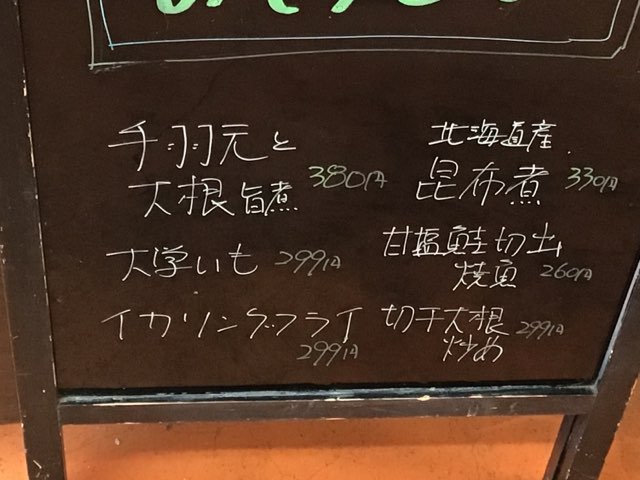 手羽元と
大根旨煮 380円
大学いも 299円
イカリングフライ
299円
北海道産
昆布煮 330円
甘塩鮭切出
焼魚 260円
切干大根 299円
炒め